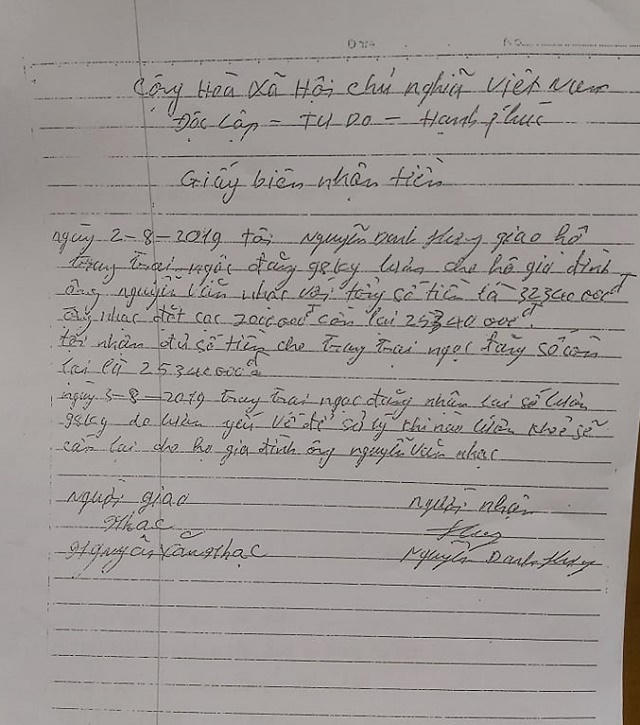 Cộng Hoà Xã Hội chủ nghĩa Việt Nam
Độc Lập - Tự Do - Hạnh Phúc
Giấy biên nhận tiền
ngày 2-8-2019 tôi Nguyễn Danh Huy giao hộ
trang trại ngọc đăng 98kg lươn cho hộ gia đình
ông nguyễn văn nhạc với tổng số tiền là 32340 000đ
ông nhạc đặt cọc 7000 000đ còn lại 25340 000đ.
tôi nhận đủ số tiền cho trang trại ngọc đăng số còn
lại là 25340000đ
ngày 3-8-2019 trang trại ngọc đăng nhận lại số lươn
98kg do lươn yếu về để sử lý khi nào lươn khoẻ sẽ
cân lại cho hộ gia đình ông nguyễn văn nhạc
người giao
người nhận
nhạc
Huy
Nguyễn Văn nhạc
Nguyễn Danh Huy